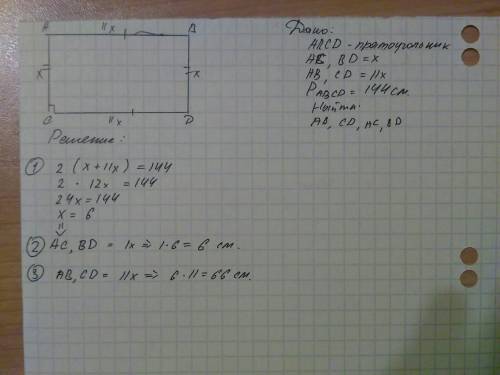 A 11x B
x x
C 11x D
Дано:
ABCD - прямоугольник
AC, BD = x
AB, CD = 11x
P ABCD = 144 см.
Найти:
AB, CD, AC, BD
Решение:
① 2 (x + 11x) = 144
2 · 12x = 144
24x = 144
x = 6
⇓
② AC, BD = 1x => 1·6 = 6 см.
③ AB, CD = 11x => 6·11 = 66 см.